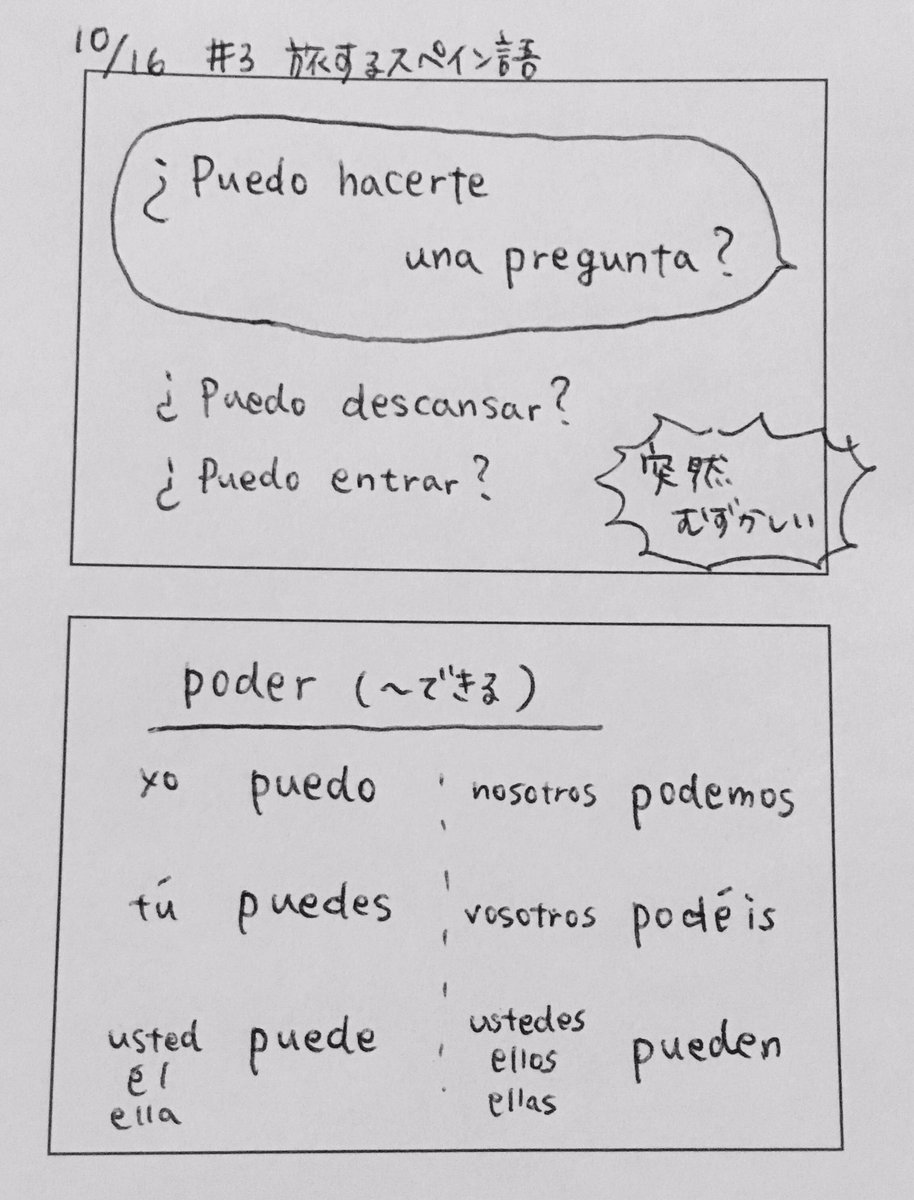 10/16 #3 旅するスペイン語
¿Puedo hacerte
una pregunta?
¿Puedo descansar?
¿Puedo entrar?
突然
むずかしい
poder (〜できる)
yo puedo nosotros podemos
tú puedes vosotros podéis
usted puede ustedes pueden
él ellos
ella ellas